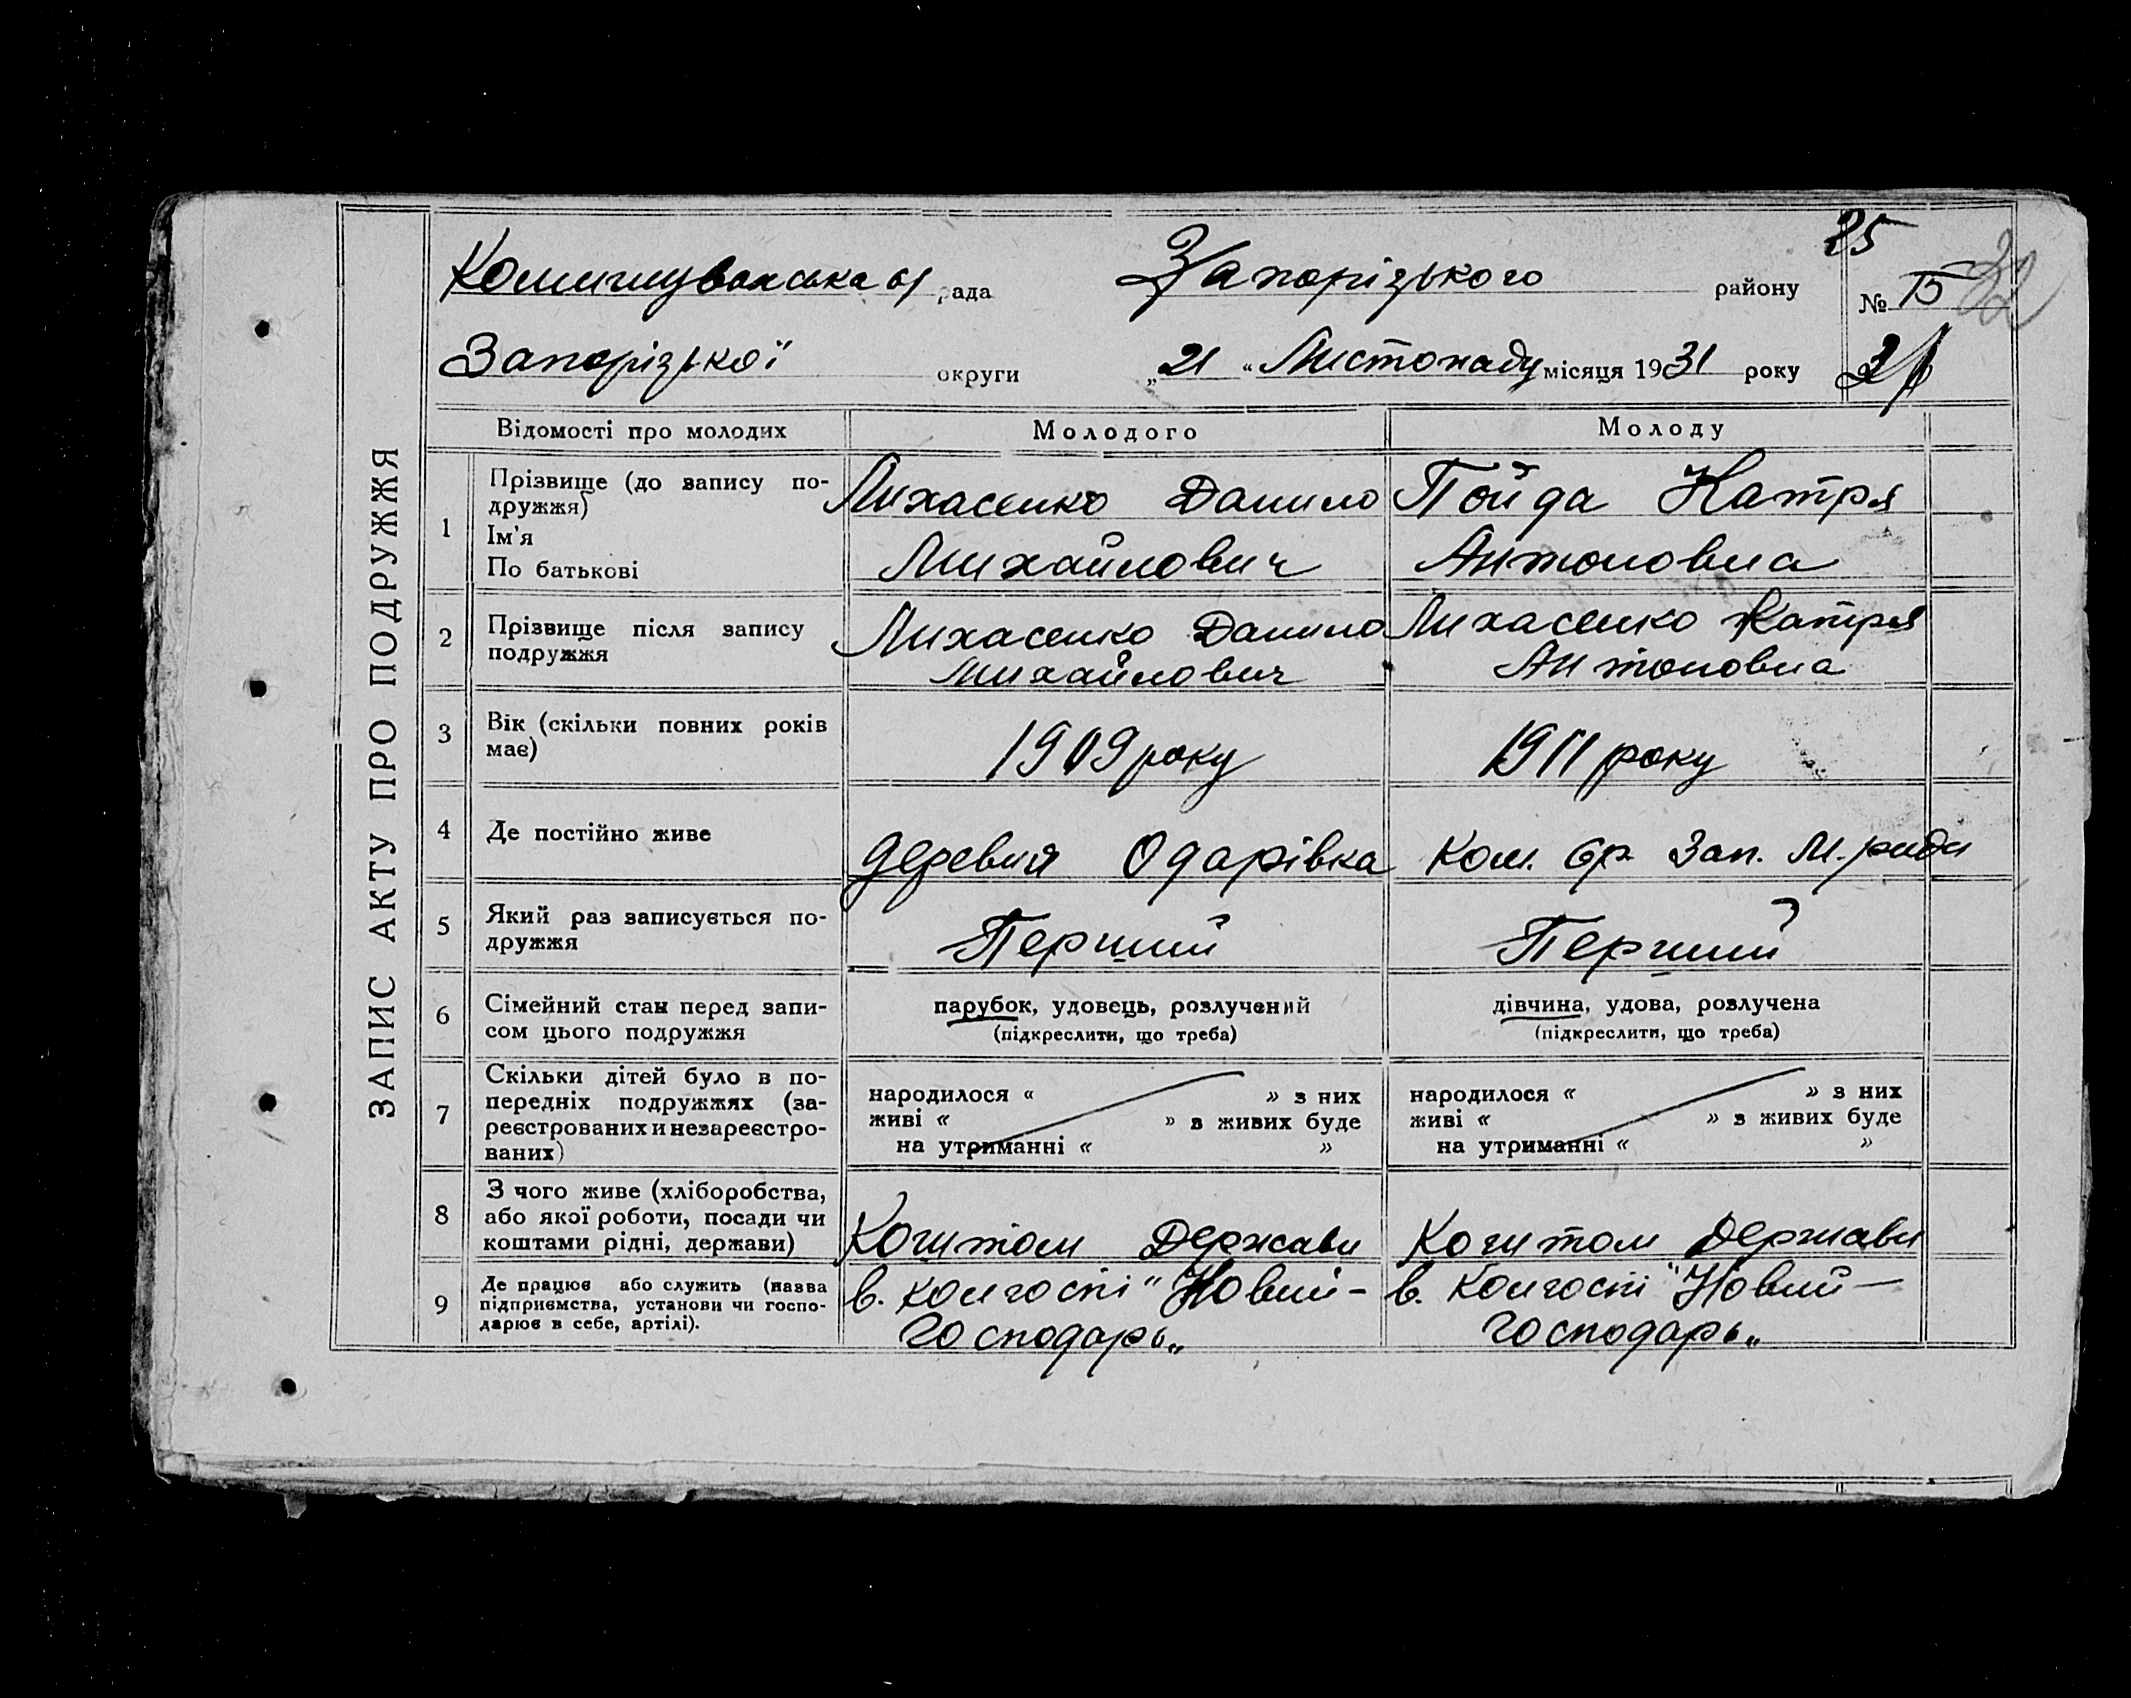 ЗАПИС АКТУ ПРО ПОДРУЖЖЯ
25
Комишуваська с/ рада Запорізького району № 15 32
Запорізької округи „21“ Листопаду місяця 1931 року
Відомості про молодих Молодого Молоду
1 Прізвище (до запису по-
дружжя)
Ім'я
По батькові
Лихасенко Данило
Михайлович
Пойда Катря
Антоновна
2 Прізвище після запису
подружжя
Лихасенко Данило
Михайлович
Лихасенко Катря
Антоновна
3 Вік (скільки повних років
має)
1909 року
1911 року
4 Де постійно живе
деревня Одарівка
Ком. ср. Зап. М. ради
5 Який раз записується по-
дружжя
Перший
Перший
6 Сімейний стан перед запи-
сом цього подружжя
парубок, удовець, розлучений
(підкреслити, що треба)
дівчина, удова, розлучена
(підкреслити, що треба)
7 Скільки дітей було в по-
передніх подружжях (за-
реєстрованих и незареєстро-
ваних)
народилося « » з них
живі « » з живих буде
на утриманні « »
народилося « » з них
живі « » з живих буде
на утриманні « »
8 З чого живе (хліборобства,
або якої роботи, посади чи
коштами рідні, держави)
Коштом Держави
Коштом Держави
9 Де працює або служить (назва
підприємства, установи чи госпо-
дарює в себе, артілі).
в. колгоспі "Новий-
Господарь„
в. колгоспі "Новий—
Господарь„